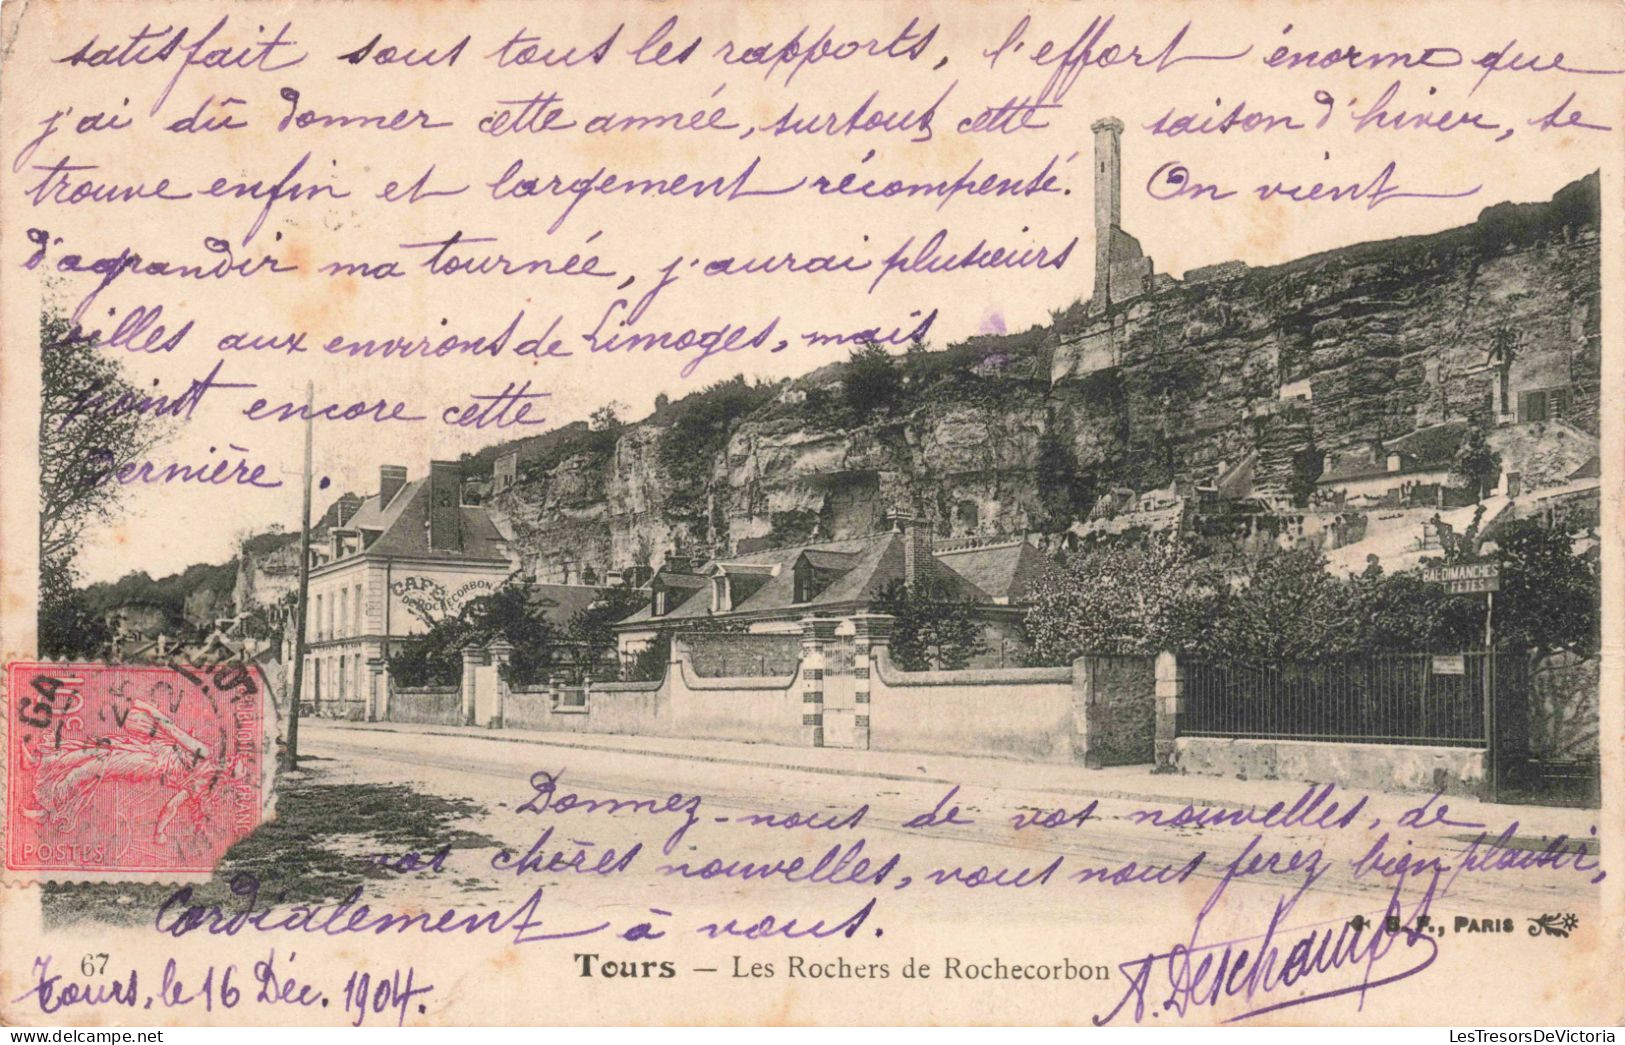 satisfait sous tous les rapports, l'effort énorme que
j'ai dû donner cette année, surtout cette saison d'hiver, se
trouve enfin et largement récompensé. On vient
d'agrandir ma tournée, j'aurai plusieurs
villes aux environs de Limoges, mais
point encore cette
dernière.
CAFÉ
DE ROCHECORBON
BAL-DIMANCHES
FÊTES
10c
POSTES
Donnez-nous de vos nouvelles, de
vos chères nouvelles, vous nous ferez bien plaisir,
Cordialement à vous.
A. Deschamps
C. B. F., PARIS
67
Tours — Les Rochers de Rochecorbon
Tours, le 16 Déc. 1904.
LesTresorsDeVictoria